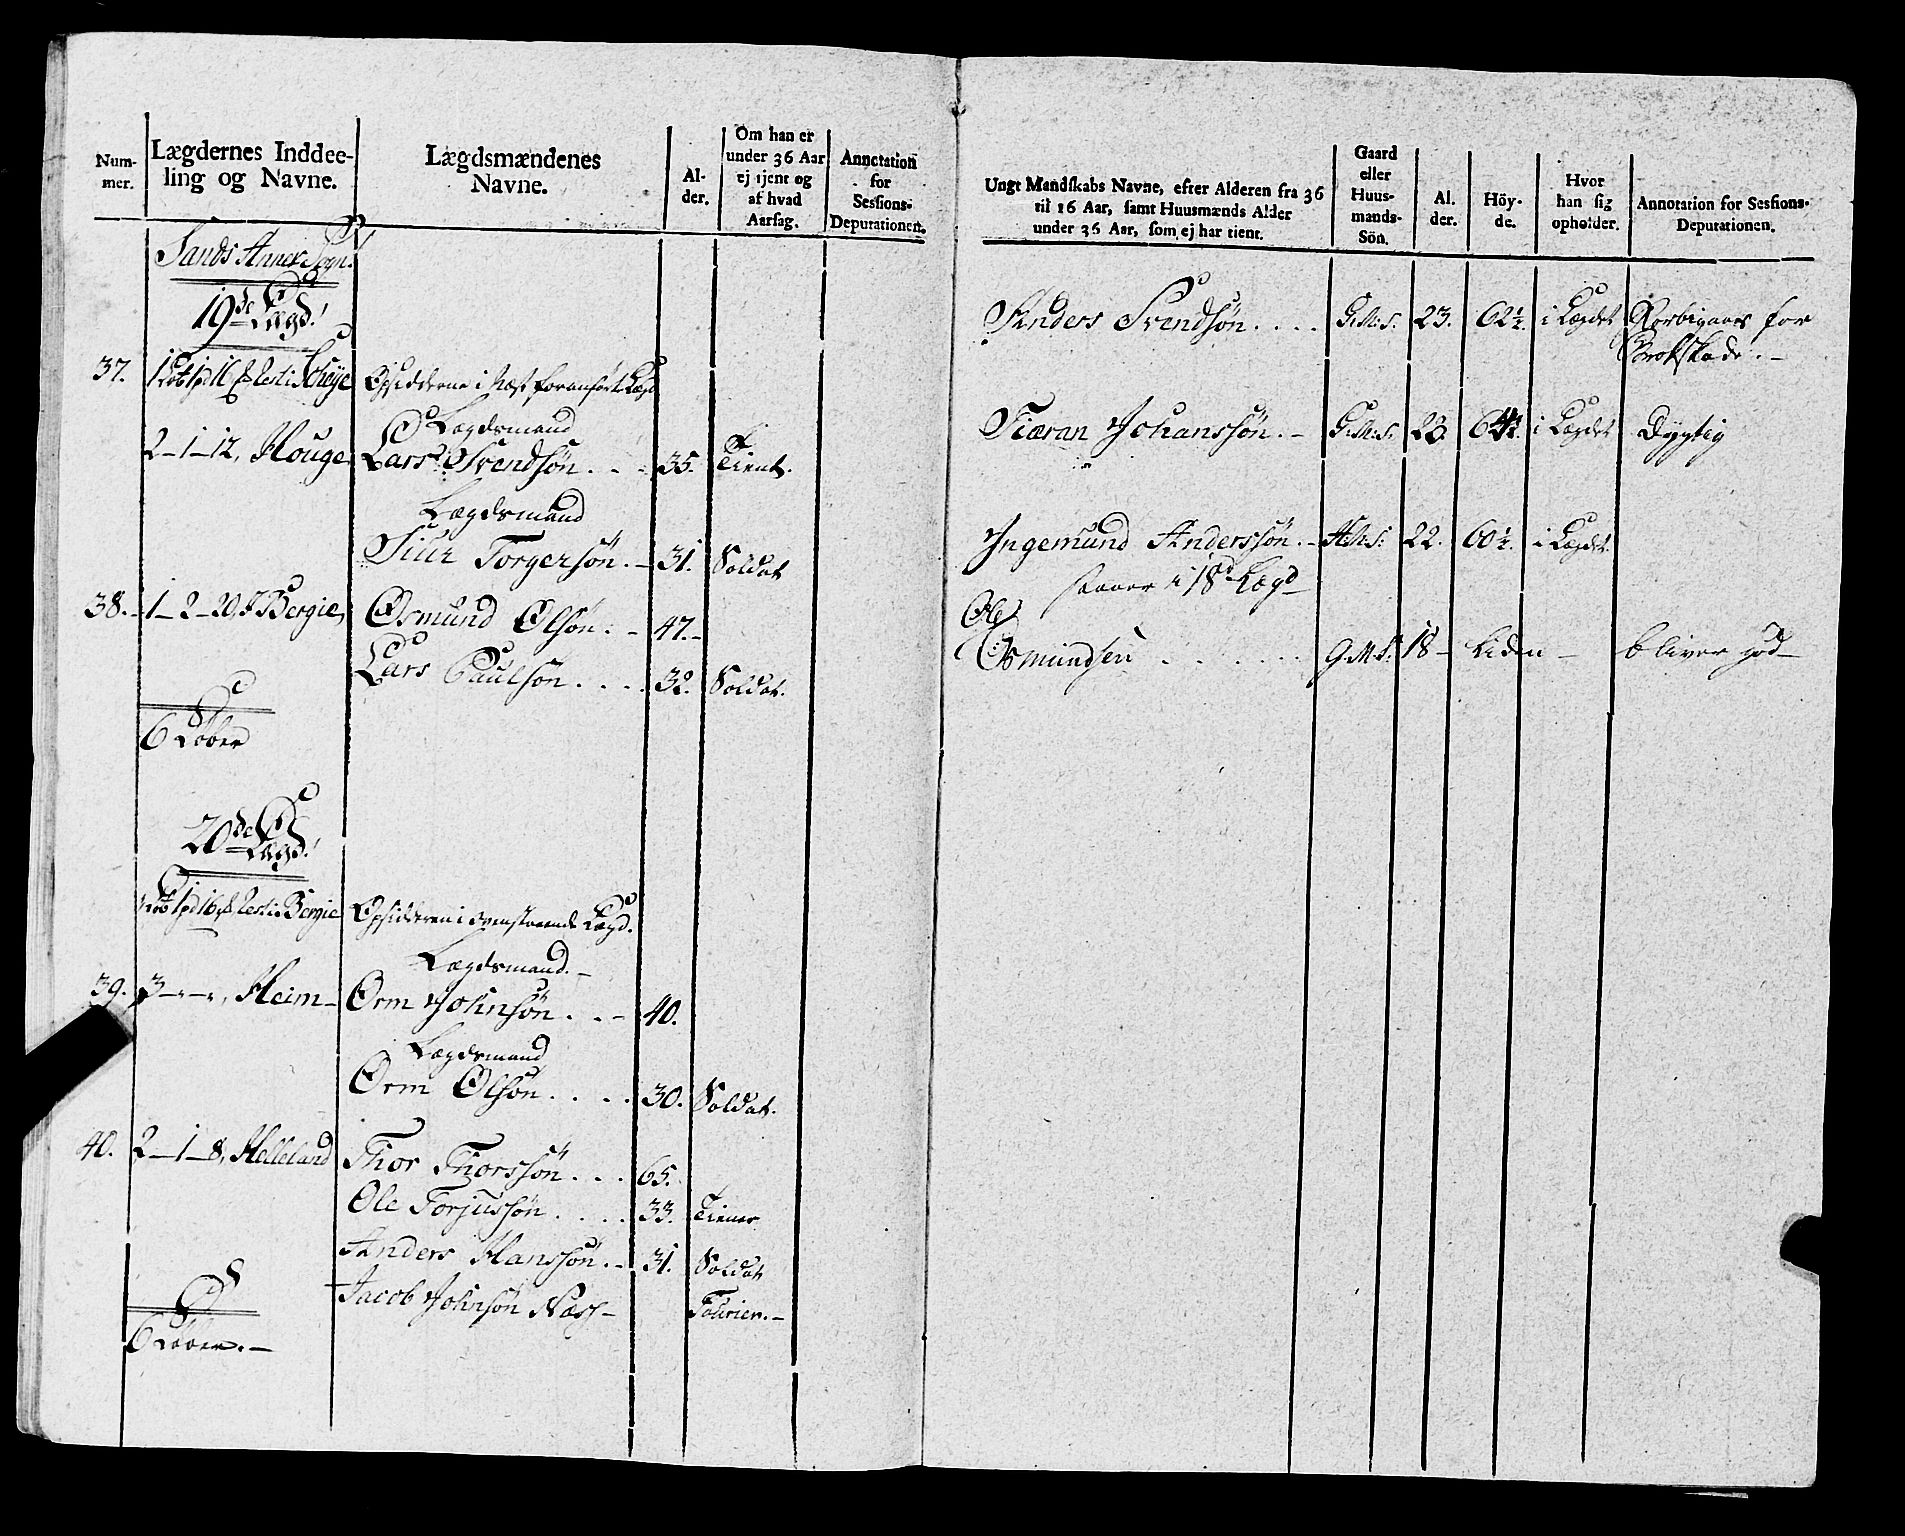 Num-
mer.
Lægdernes Inddee-
ling og Navne.
Lægdsmændenes
Navne.
Al-
der.
Om han er
under 36 Aar
ej tjent og
af hvad
Aarsag.
Annotation
for
Sessions-
Deputationen.
Sands Annex Sogn.
19de Lægd!
37. 1 Løb 1 pd 16 Resti Scheye Opsidderne i Næst foranført Lægd
Lægdsmand
2 - 1 - 12, Houge Lars Svendsøn . . - 35. Tient.
Lægdsmand
Siur Torgersøn . - 31. Soldat
38. - 1 - 2 - 20, Bergie, Osmund Olsøn . - 47. -
Lars Paulsøn . . . . 32. Soldat.
6 Løber
20de Lægd!
1 pd 16 Resti Bergie Opsidderen i ovenstaaende Lægd.
Lægdsmand. -
39. 3 - " - ", Heim - Orm Johnsøn . . - 40.
Lægdsmand
Orm Olsøn . . . . 30. Soldat.
40. 2 - 1 - 8, Helleland Thor Thorssøn . . . 65.
Ole Torjussøn . . . . 33. Tiener
Anders Hanssøn . - 31. Soldat
Jacob Johnsøn Næss - Fourier. -
6 Løber. -
Ungt Mandskabs Navne, efter Alderen fra 36
til 16 Aar, samt Huusmænds Alder
under 36 Aar, som ej har tient.
Gaard
eller
Huus-
mands-
Sön.
Al.
der.
Höy-
de.
Hvor
han sig
opholder.
Annotation for Sessions-
Deputationen.
Anders Svendsøn . . . . G.M.S. 23. 62½ i Lægdet Forbigaaes for
Brokskade. -
Tiæran Johanssøn . - G.M.S. 23. i Lægdet Dygtig
Ingemund Anderssøn . - H.M.S. 22. 60½. i Lægdet
staaer i 18d Lægd
Ole
Osmundsen . . . . . . G.M.S. 18 - Liden - bliver god -